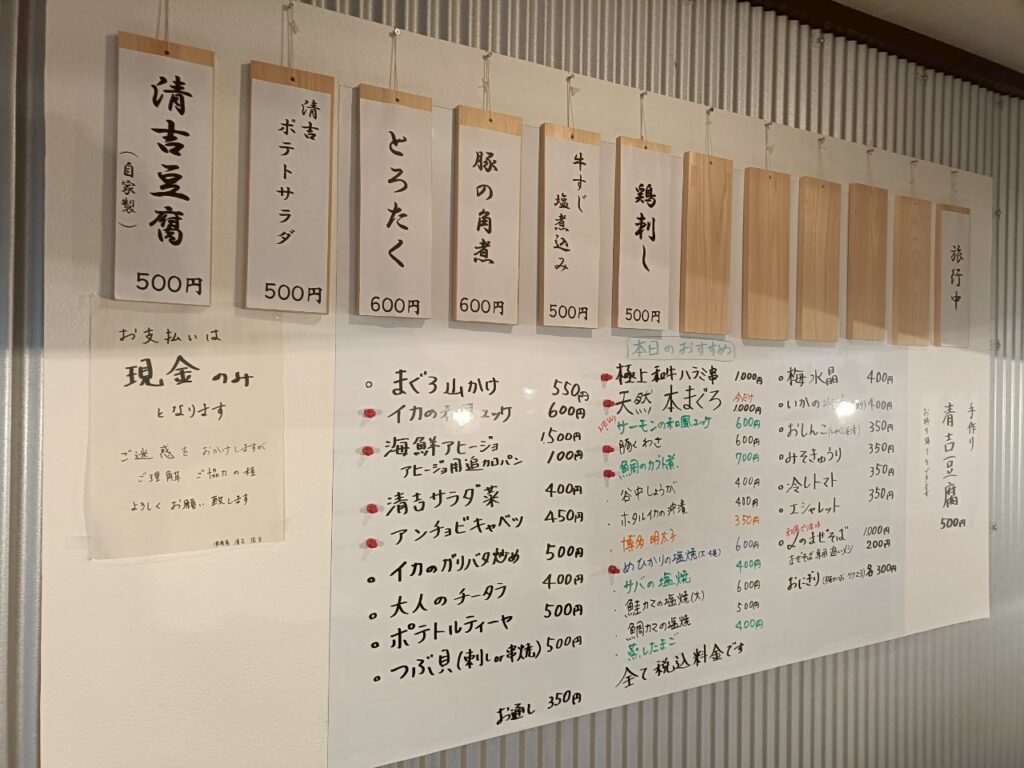 清吉豆腐
(自家製)
500円
清吉
ポテトサラダ
500円
とろたく
600円
豚の角煮
600円
牛すじ
塩煮込み
500円
鶏刺し
500円
旅行中
お支払いは
現金のみ
となります
ご迷惑をおかけしますが
ご理解 ご協力の程
よろしくお願い致します
まぐろ山かけ 550円
イカの和風ユッケ 600円
海鮮アヒージョ 1500円
アヒージョ用追加パン 100円
清吉サラダ菜 400円
アンチョビキャベツ 450円
イカのガリバタ炒め 500円
大人のチータラ 400円
ポテトルティーヤ 500円
つぶ貝(刺しor串焼) 500円
お通し 350円
本日のおすすめ
極上和牛ハラミ串 1000円
天然 本まぐろ 今だけ 1000円
NEW! サーモンの和風ユッケ 600円
豚くわさ 600円
鯛のカブト煮 700円
谷中しょうが 400円
ホタルイカの沖漬 400円
博多 明太子 350円
めひかりの塩焼 600円
サバの塩焼 400円
鮭カマの塩焼(大) 600円
鯛カマの塩焼 500円
蒸したまご 400円
全て税込料金です
梅水晶 400円
いかの 400円
おしんこ 350円
みそきゅうり 350円
冷しトマト 350円
エシャレット 350円
〆のまぜそば 1000円
まぜそば専用追いメシ 200円
おにぎり 各300円
手作り
清吉豆腐
お持ち帰りもできます
500円